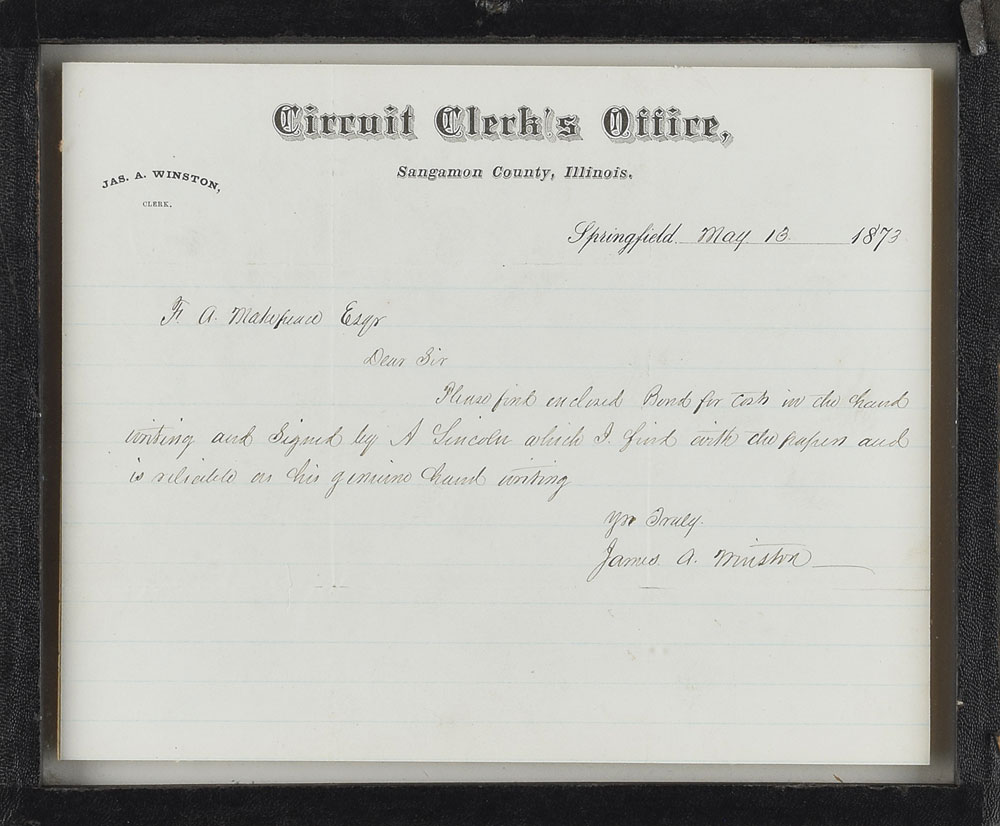 Circuit Clerk's Office,
Sangamon County, Illinois.
JAS. A. WINSTON,
CLERK.
Springfield May 13 1873
F. A. Makepeace Esqr
Dear Sir
Please find enclosed Bond for costs in the hand
writing and Signed by A Lincoln which I find with the papers and
is reliable as his genuine hand writing
Yrs Truly
James A. Winston